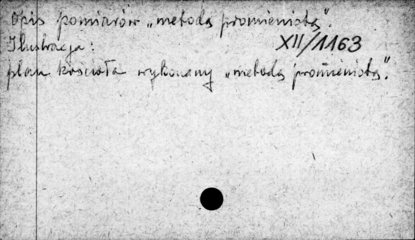 Opis pomiarów „metodą promienistą”.
Ilustracja: XII/1163
plan kościoła wykonany „metodą promienistą”.